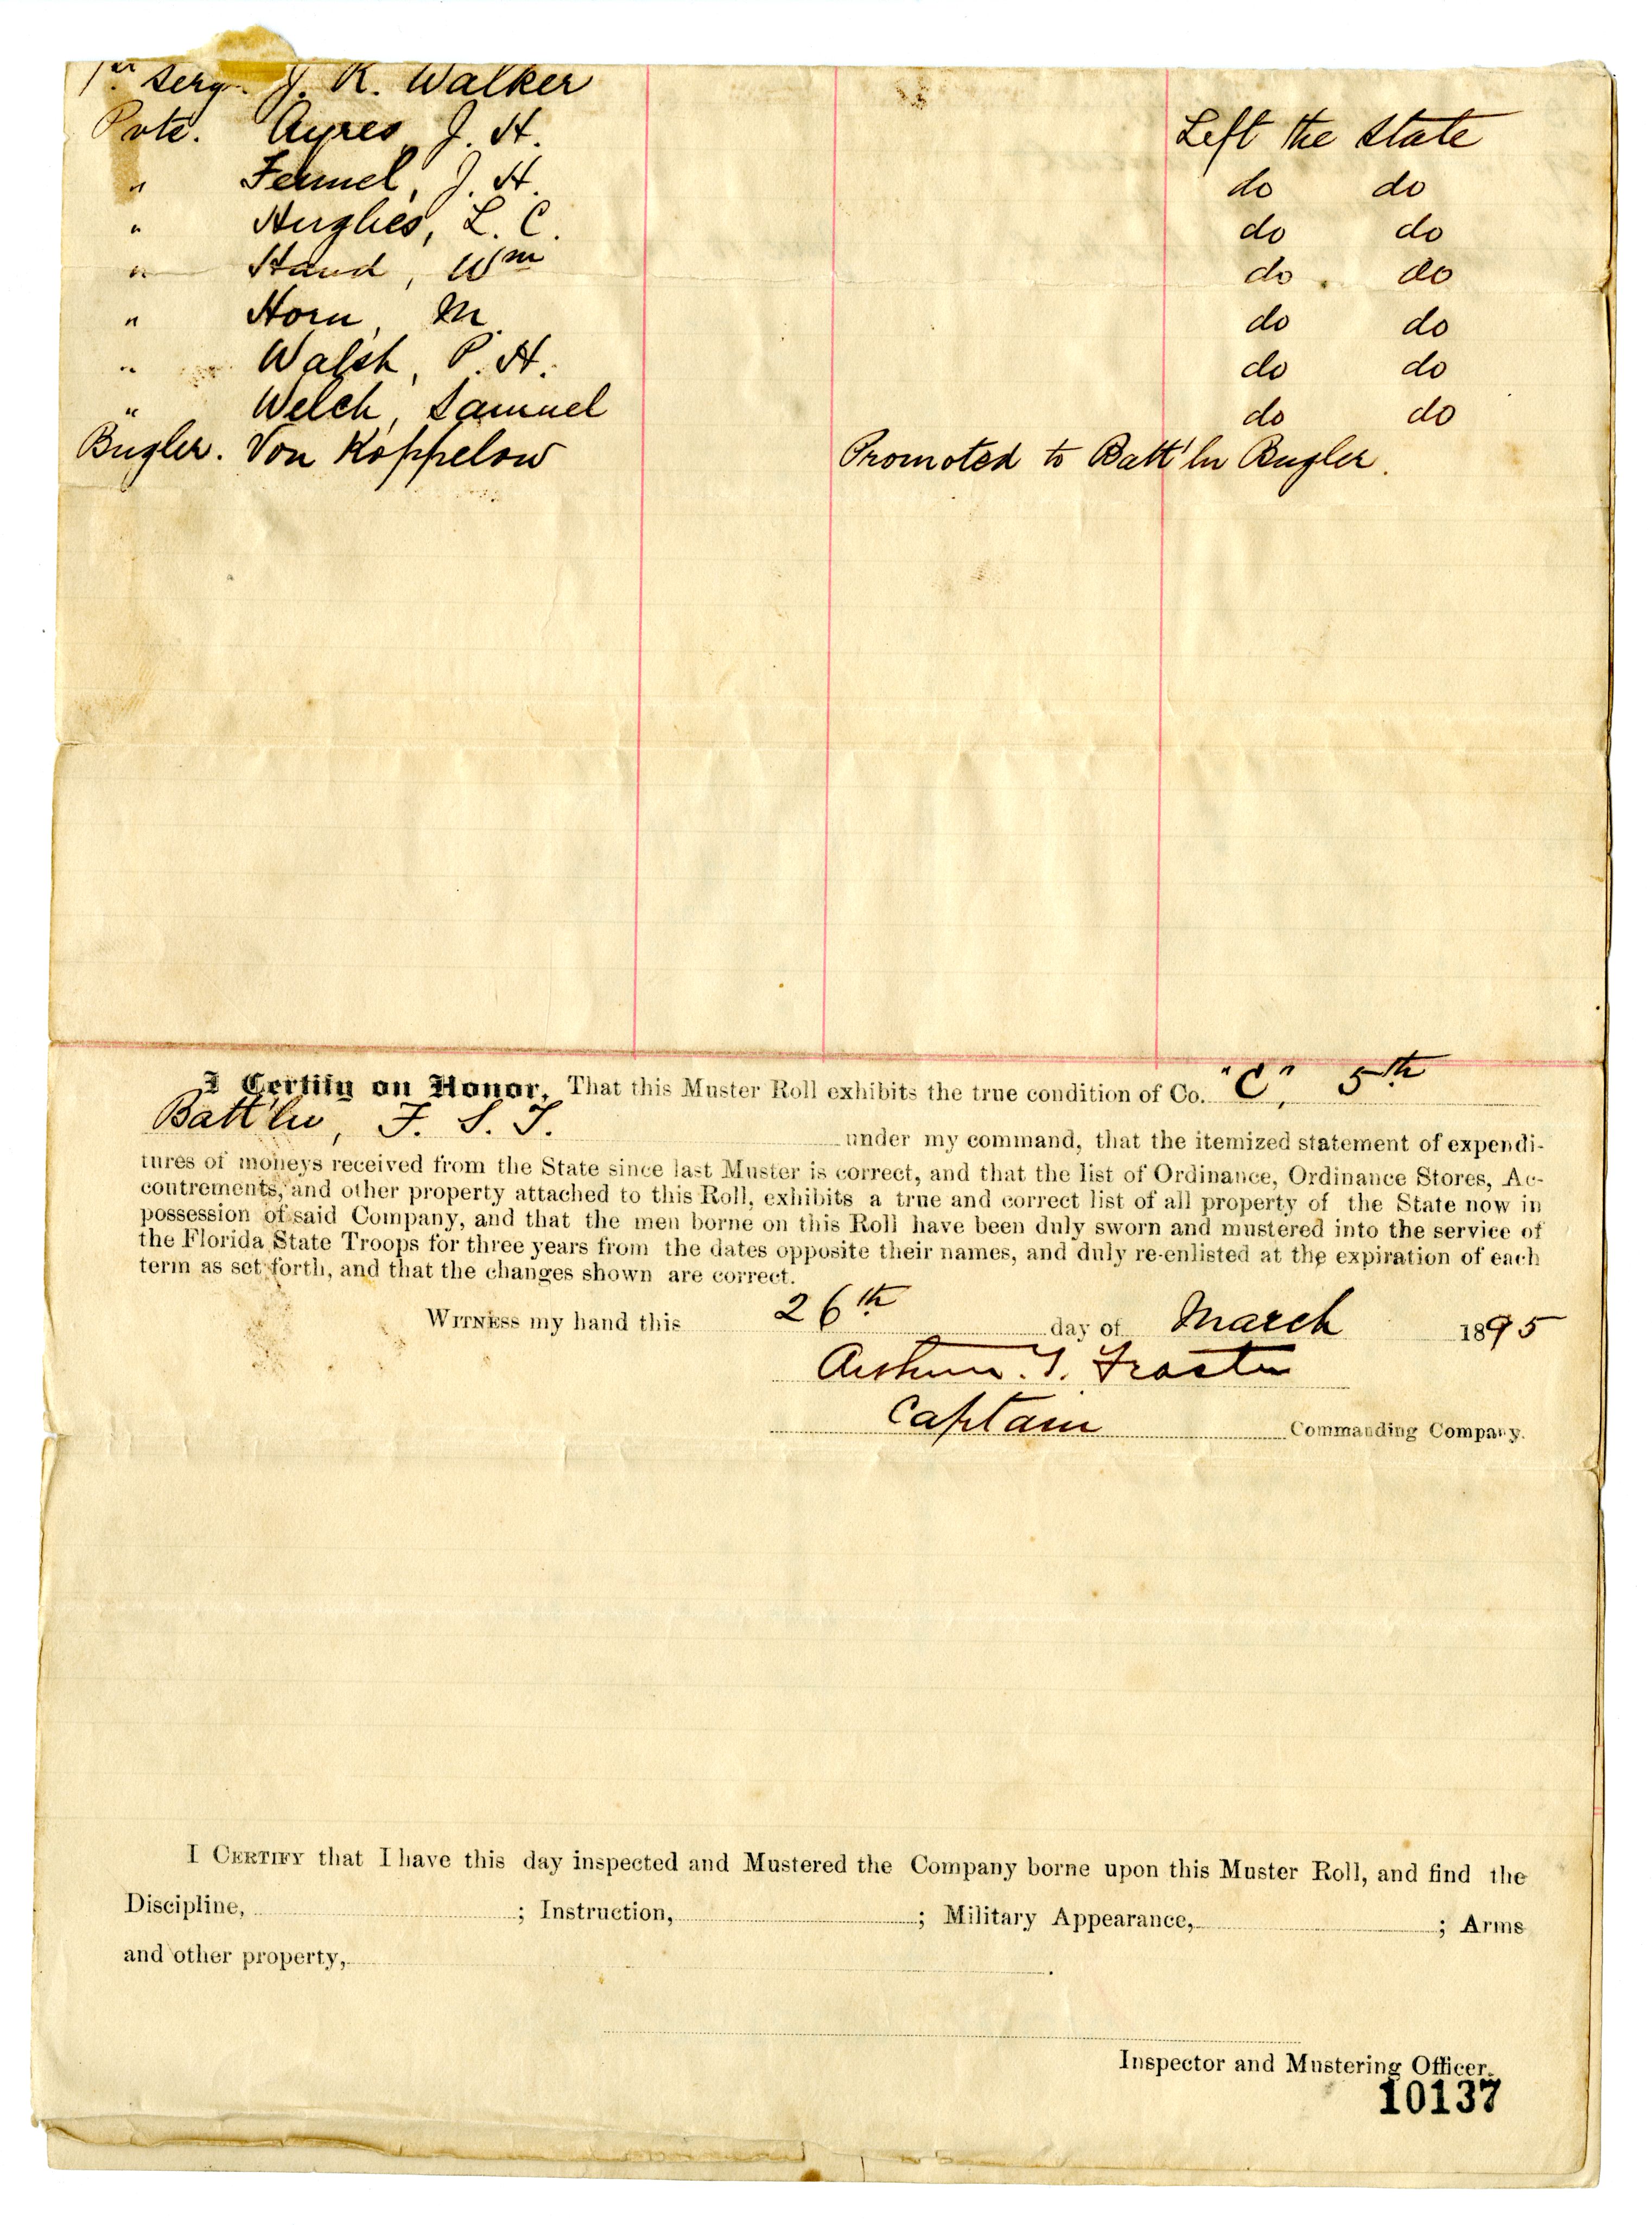 1st Serg. J. R. Walker
Pvte. Ayres, J. H. Left the State
" Fennel, J. H. do do
" Hughes, L. C. do do
" Hand, Wm do do
" Horn, M. do do
" Walsh, P. H. do do
" Welch, Samuel do do
Bugler. Von Koppelow Promoted to Batt'ln Bugler.
I Certify on Honor, That this Muster Roll exhibits the true condition of Co. "C", 5th
Batt'ln, F. S. T. under my command, that the itemized statement of expendi-
tures of moneys received from the State since last Muster is correct, and that the list of Ordinance, Ordinance Stores, Ac-
coutrements, and other property attached to this Roll, exhibits a true and correct list of all property of the State now in
possession of said Company, and that the men borne on this Roll have been duly sworn and mustered into the service of
the Florida State Troops for three years from the dates opposite their names, and duly re-enlisted at the expiration of each
term as set forth, and that the changes shown are correct.
WITNESS my hand this 26th day of March 1895
Arthur. T.
Captain Commanding Company.
I CERTIFY that I have this day inspected and Mustered the Company borne upon this Muster Roll, and find the
Discipline, ; Instruction, ; Military Appearance, ; Arms
and other property, .
Inspector and Mustering Officer.
10137